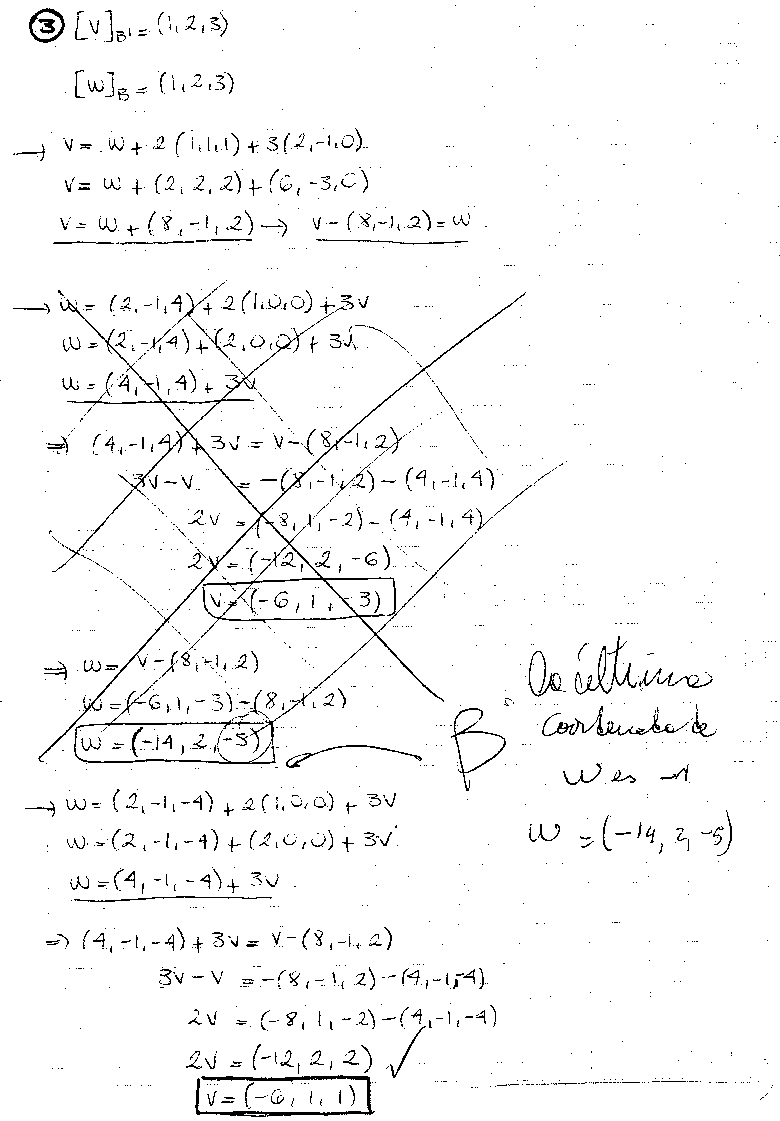 ③ [V]B' = (1,2,3)
[W]B = (1,2,3)
→ V = W + 2(1,1,1) + 3(2,-1,0)
V = W + (2,2,2) + (6,-3,0)
V = W + (8,-1,2) → V-(8,-1,2) = W
→ W = (2,-1,4) + 2(1,0,0) + 3V
W = (2,-1,4) + (2,0,0) + 3V
W = (4,-1,4) + 3V
⇒ (4,-1,4) + 3V = V-(8,-1,2)
3V-V = -(8,-1,2)-(4,-1,4)
2V = (-8,1,-2)-(4,-1,4)
2V = (-12,2,-6)
V = (-6,1,-3)
⇒ W = V-(8,-1,2)
W = (-6,1,-3)-(8,-1,2)
W = (-14,2,-5)
→ W = (2,-1,-4) + 2(1,0,0) + 3V
W = (2,-1,-4) + (2,0,0) + 3V
W = (4,-1,-4) + 3V
⇒ (4,-1,-4) + 3V = V-(8,-1,2)
3V-V = -(8,-1,2)-(4,-1,-4)
2V = (-8,1,-2)-(4,-1,-4)
2V = (-12,2,2) ✓
V = (-6,1,1)
B
La última
coordenada de
W es
W = (-14,2,-5)